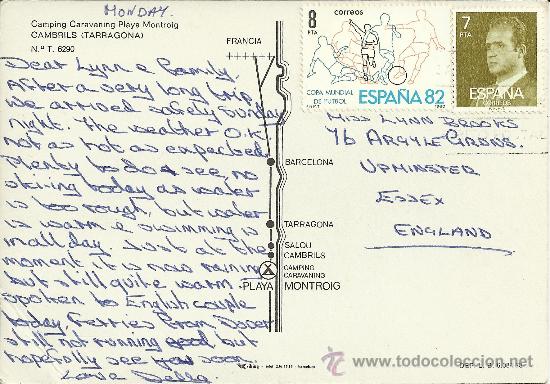 MONDAY.
Camping Caravaning Playa Montroig
CAMBRILS (TARRAGONA)
N.º T. 6290
Dear Lynn & Family.
After a very long trip
we arrived safely Sunday
night. The weather O.K.
not as hot as expected
Plenty to do & see, no
skiing today as water
is too rough, but water
is warm & swimming is
all day. Just at the
moment it is now raining
but still quite warm.
Spoken to English couple
today, Ferries from Dover
still not running good but
hopefully see you soon
Love Della
FRANCIA
BARCELONA
TARRAGONA
SALOU
CAMBRILS
CAMPING
CARAVANING
PLAYA MONTROIG
8
PTA
correos
COPA MUNDIAL
DE FUTBOL
ESPAÑA 82
7
PTA
ESPAÑA
CORREOS
Miss LYNN BROOKS
76 ARGYLE GRDNS.
UPMINSTER
ESSEX
ENGLAND
www.todocoleccion.net